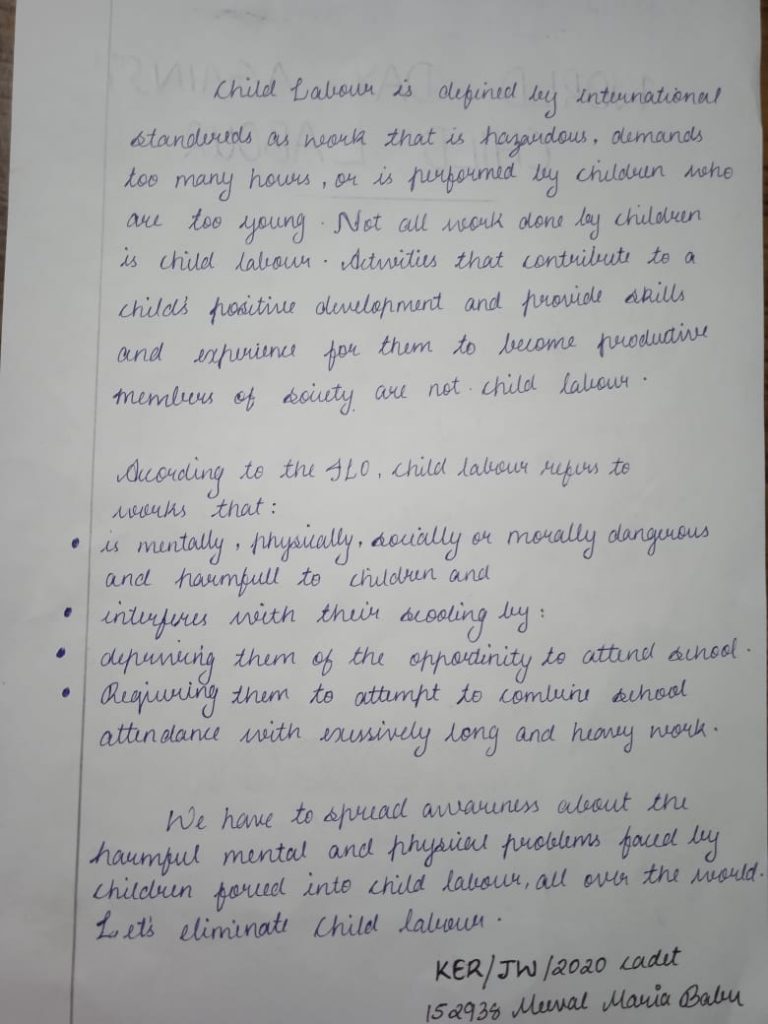 Child Labour is defined by international
standereds as work that is hazardous, demands
too many hours, or is performed by children who
are too young. Not all work done by children
is child labour. Activities that contribute to a
child's positive development and provide skills
and experience for them to become productive
members of society are not child labour.
According to the ILO, child labour refers to
works that:
• is mentally, physically, socially or morally dangerous
and harmfull to children and
• interferes with their scooling by:
• depriving them of the opportinity to attend school.
• Reqiuring them to attempt to combine school
attendance with exessively long and heavy work.
We have to spread awareness about the
harmful mental and physical problems faced by
children forced into child labour, all over the world.
Let's eliminate Child labour.
KER/JW/2020 cadet
152938 Meeval Maria Babu